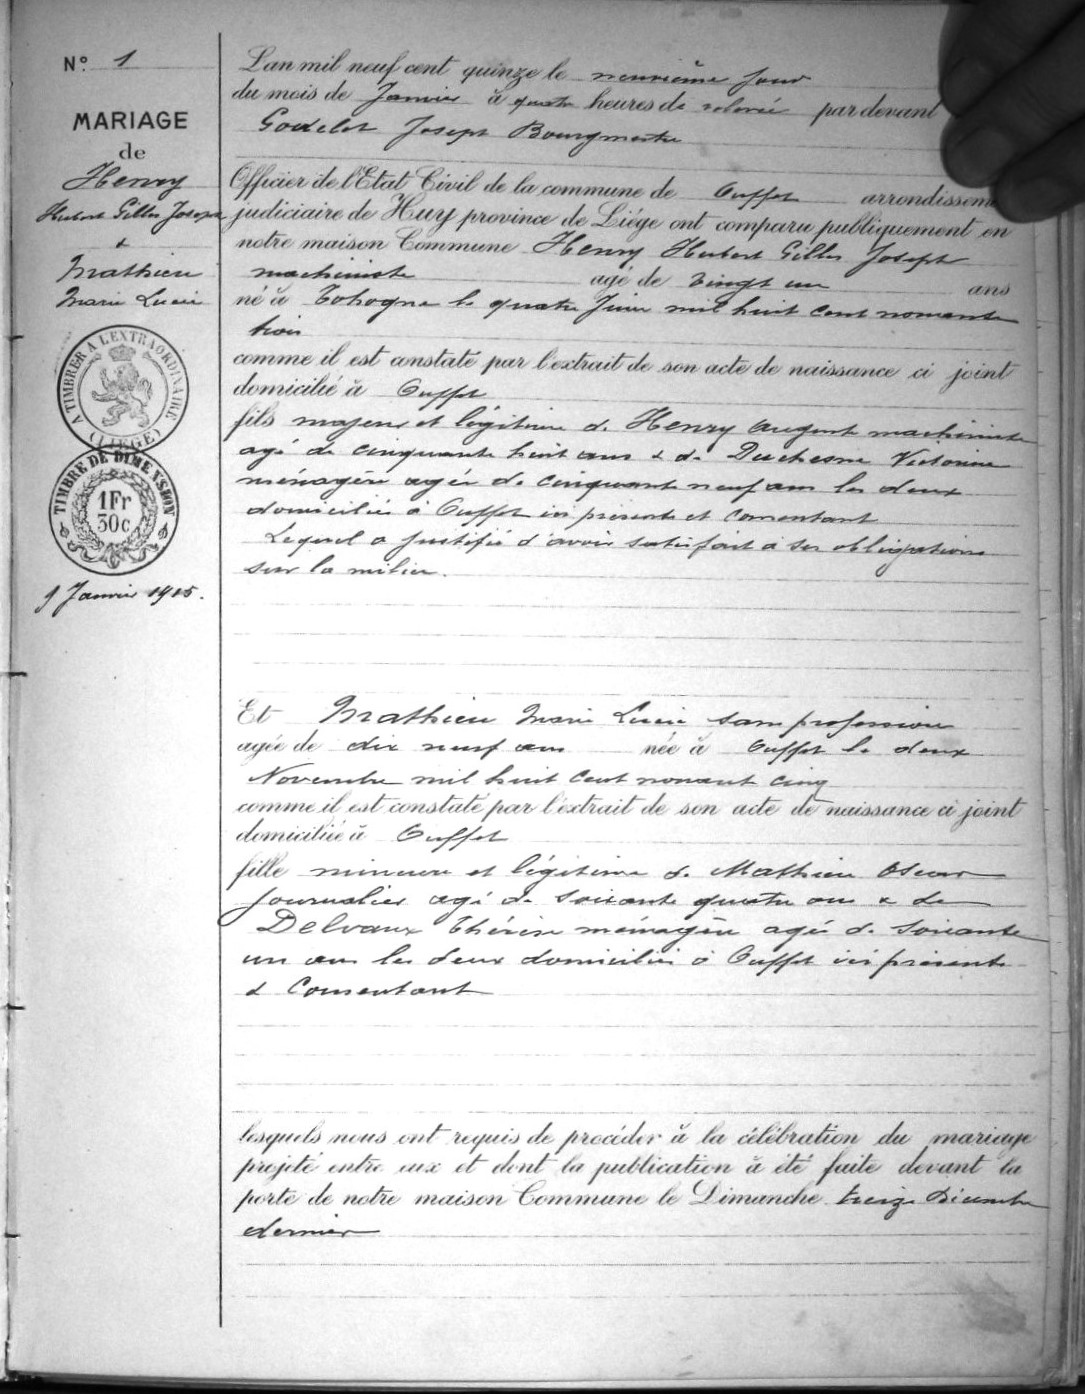 N° 1
MARIAGE
de
Henry
Hubert Gilles Joseph
&
Mathieu
Marie Lucie
A TIMBRER A L'EXTRAORDINAIRE
(LIEGE)
TIMBRE DE DIMENSION
1Fr
30c
9 Janvier 1915.
L'an mil neuf cent quinze le neuvième jour
du mois de Janvier à quatre heures de relevée par devant
Godelet Joseph Bourgmestre
Officier de l'Etat Civil de la commune de Ouffet arrondisseme
judiciaire de Huy province de Liége ont comparu publiquement en
notre maison Commune Henry Hubert Gilles Joseph
machiniste agé de vingt un ans
né à Tohogne le quatre Juin mil huit cent nonante
trois
comme il est constaté par l'extrait de son acte de naissance ci joint
domicilié à Ouffet
fils majeur et légitime de Henry August machiniste
agé de cinquante huit ans & de Duchesne Victorine
ménagère agée de cinquante neuf ans les deux
domiciliés à Ouffet ici présents et consentant
Lequel a justifié d'avoir satisfait à ses obligations
sur la milice.
Et Mathieu Marie Lucie sans profession
agée de dix neuf ans née à Ouffet le deux
Novembre mil huit cent nonant cinq
comme il est constaté par l'extrait de son acte de naissance ci joint
domiciliée à Ouffet
fille mineure et légitime de Mathieu Oscar
journalier agé de soixante quatre ans & de
Delvaux Thérèse ménagère agée de soixante
un ans les deux domiciliés à Ouffet ici présents
& Consentant
lesquels nous ont requis de procéder à la célébration du mariage
projeté entre eux et dont la publication à été faite devant la
porte de notre maison Commune le Dimanche treize Décembre
dernier